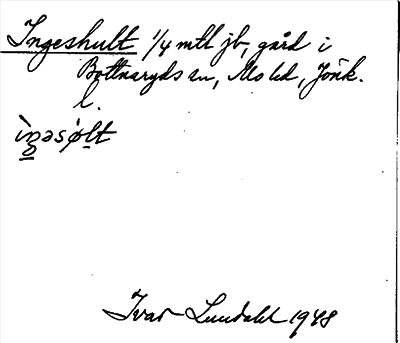 Ingeshult 1/4 mtl jb, gård i
Bottnaryds sn, Mo hd, Jönk.
l.
ìŋ̲əsø̀l̲t
Ivar Lundahl 1948